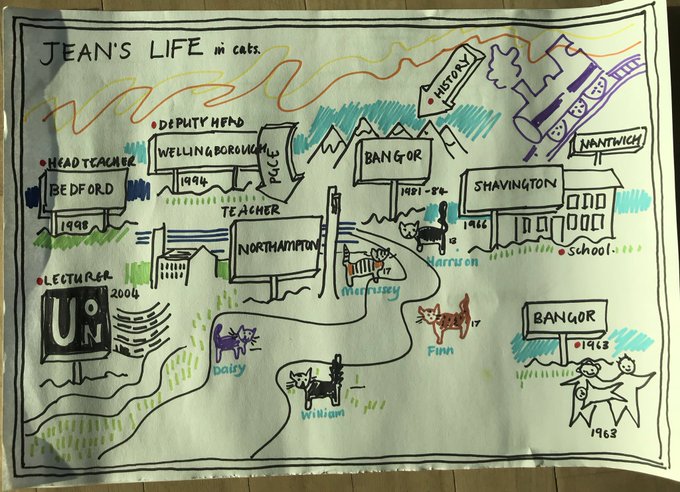 JEAN'S LIFE in cats.
HISTORY
NANTWICH
DEPUTY HEAD
WELLINGBOROUGH
1994
PGCE
BANGOR
1981-84
HEADTEACHER
BEDFORD
1998
SHAVINGTON
1966
SCHOOL.
TEACHER
NORTHAMPTON
13
Harrison
17
Morrissey
LECTURER
2004
UON
BANGOR
1963
17
Finn
Daisy
William
1963